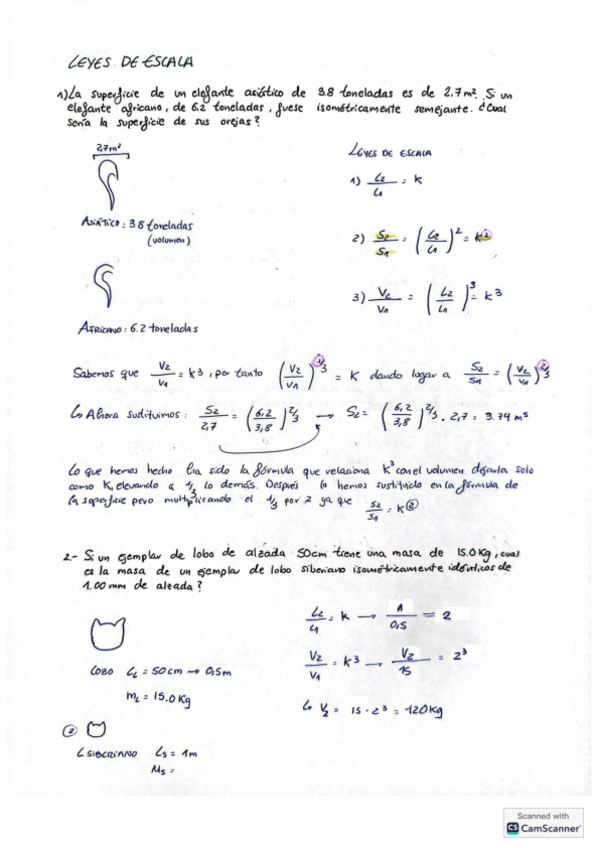 LEYES DE ESCALA
1) La superficie de un elefante asiático de 3.8 toneladas es de 2,7 m². Si un
elefante africano, de 6.2 toneladas, fuese isométricamente semejante. ¿Cual
sería la superficie de sus orejas?
2,7m²
LEYES DE ESCALA
1) L2/L1 = K
ASIÁTICO: 3.8 toneladas
(volumen)
2) S2/S1 = (L2/L1)² = K²
3) V2/V1 = (L2/L1)³ = K³
AFRICANO: 6.2 toneladas
Sabemos que V2/V1 = K³, por tanto (V2/V1)^1/3 = K dando lugar a S2/S1 = (V2/V1)^2/3
↳ Ahora sustituimos: S2/2,7 = (6,2/3,8)^2/3 → S2 = (6,2/3,8)^2/3 · 2,7 = 3.74 m²
Lo que hemos hecho ha sido la fórmula que relaciona K³ con el volumen dejarla solo
como K, elevando a 1/3 lo demás. Después lo hemos sustituido en la fórmula de
la superficie pero multiplicando el 1/3 por 2 ya que S2/S1 = K²
2.- Si un ejemplar de lobo de alzada 50cm tiene una masa de 15.0 Kg, cual
es la masa de un ejemplar de lobo siberiano isométricamente idénticos de
1.00 mm de alzada?
L2/L1 = K → 1/0,5 = 2
LOBO LL = 50 cm → 0,5m
V2/V1 = K³ → V2/15 = 2³
mL = 15.0 Kg
↳ V2 = 15 · 2³ = 120 Kg
②
LSIBERIANO LS = 1m
MS =
Scanned with
CS CamScanner